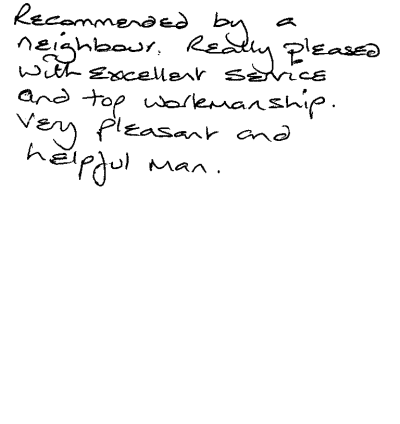 Recommended by a
neighbour. Really pleased
with excellent service
and top workmanship.
Very pleasant and
helpful man.